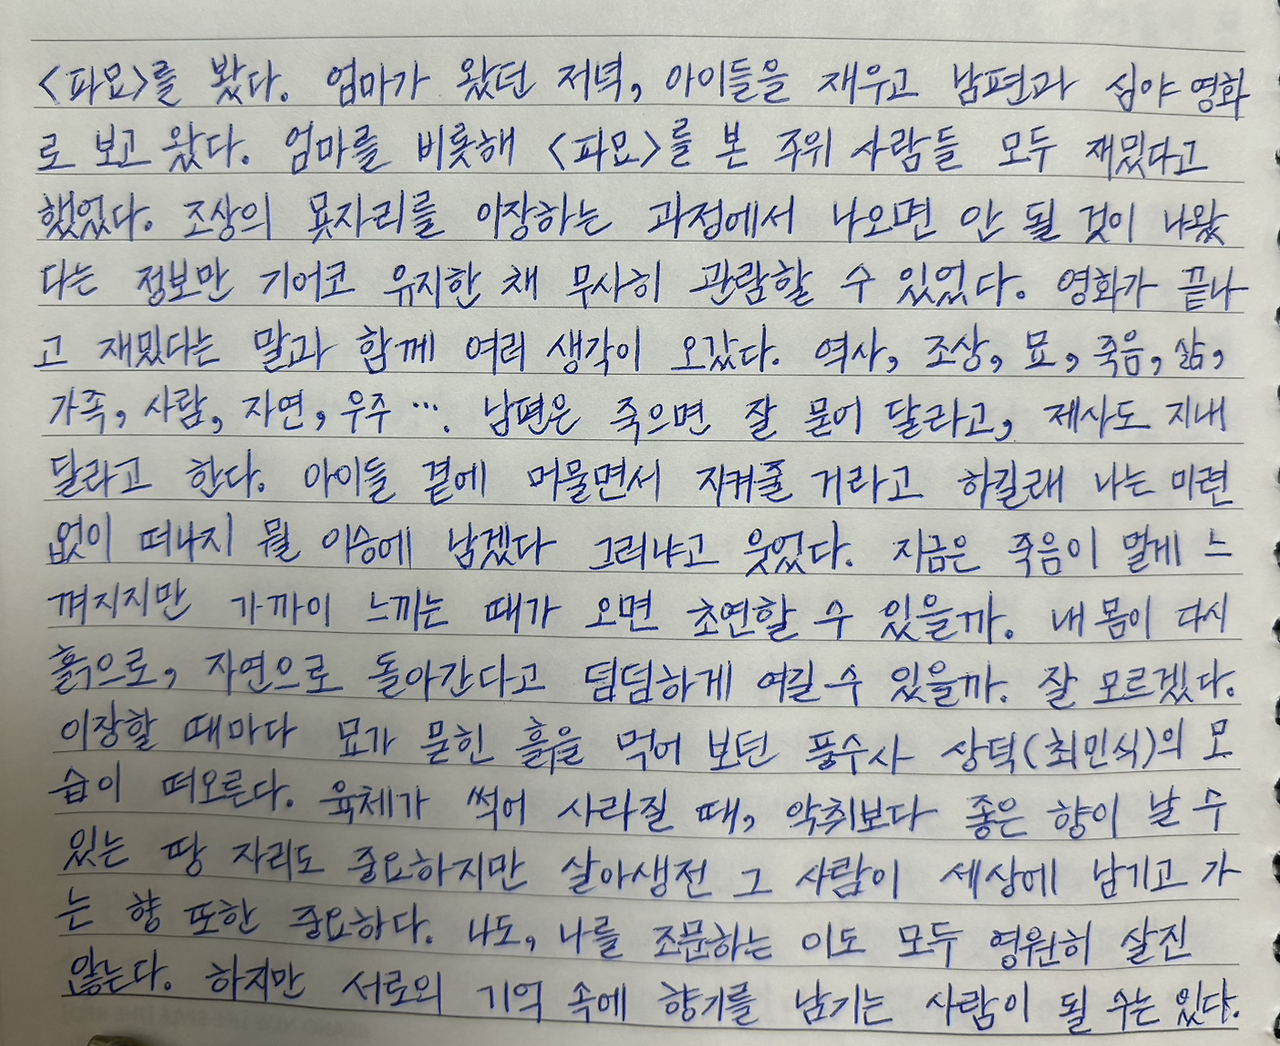 <파묘>를 봤다. 엄마가 왔던 저녁, 아이들을 재우고 남편과 심야 영화
로 보고 왔다. 엄마를 비롯해 <파묘>를 본 주위 사람들 모두 재밌다고
했었다. 조상의 묫자리를 이장하는 과정에서 나오면 안 될 것이 나왔
다는 정보만 기어코 유지한 채 무사히 관람할 수 있었다. 영화가 끝나
고 재밌다는 말과 함께 여러 생각이 오갔다. 역사, 조상, 묘, 죽음, 삶,
가족, 사람, 자연, 우주 …. 남편은 죽으면 잘 묻어 달라고, 제사도 지내
달라고 한다. 아이들 곁에 머물면서 지켜줄 거라고 하길래 나는 미련
없이 떠나지 뭘 이승에 남겠다 그러냐고 웃었다. 지금은 죽음이 멀게 느
껴지지만 가까이 느끼는 때가 오면 초연할 수 있을까. 내 몸이 다시
흙으로, 자연으로 돌아간다고 덤덤하게 여길 수 있을까. 잘 모르겠다.
이장할 때마다 묘가 묻힌 흙을 먹어 보던 풍수사 상덕(최민식)의 모
습이 떠오른다. 육체가 썩어 사라질 때, 악취보다 좋은 향이 날 수
있는 땅 자리도 중요하지만 살아생전 그 사람이 세상에 남기고 가
는 향 또한 중요하다. 나도, 나를 조문하는 이도 모두 영원히 살진
않는다. 하지만 서로의 기억 속에 향기를 남기는 사람이 될 수는 있다.